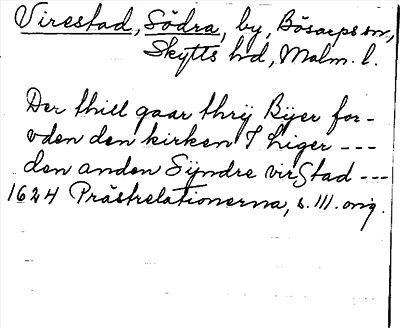 Virestad, Södra, by, Bösarps sn,
Skytts hd, Malm. l.
Der thill gaar thrÿ Bÿer for-
vden den kirken I liger ---
den anden Sÿndre virStad ---
1624 Prästrelationerna, s. 111. orig.